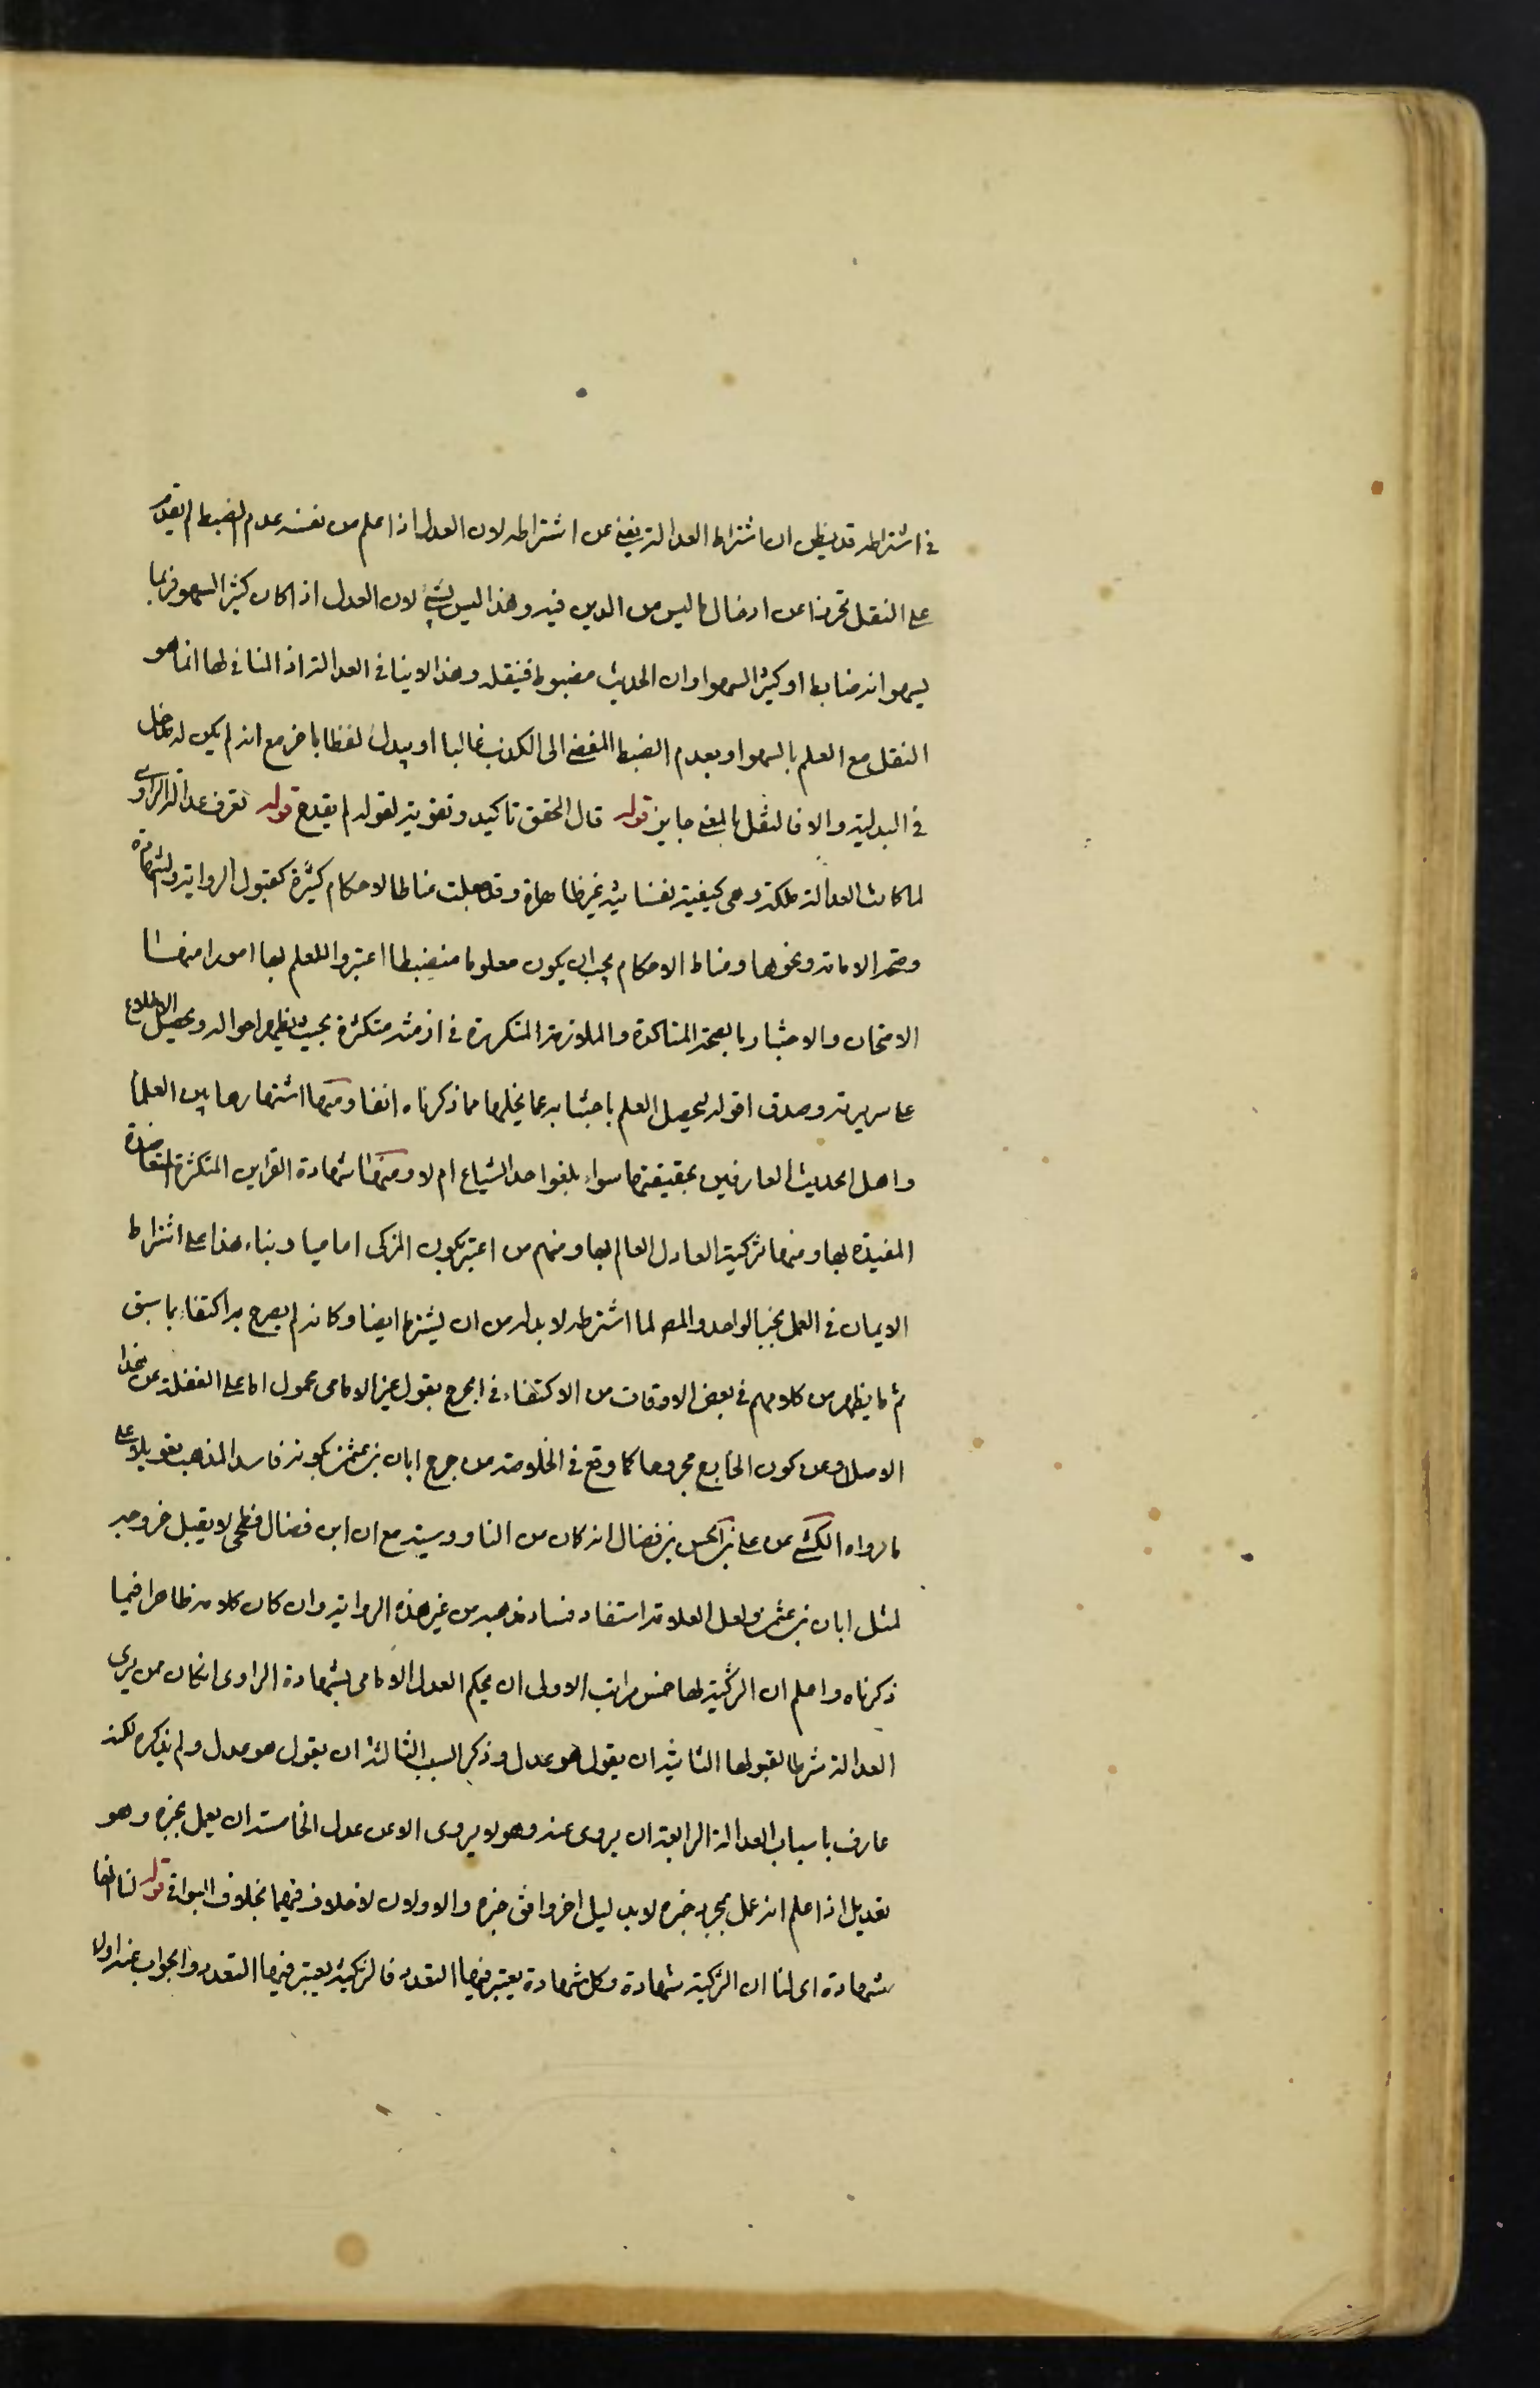 في اشتراطه قد يظن ان اشتراط العدالة يغني عن اشتراطه لان العدل اذا علم من نفسه عدم الضبط لم يقدم
على النقل تحرزا عن ادخال ما ليس من الدين فيه وهذا ليس بشي لان العدل اذا كان كثير السهو فربما
يسهو انه ضابط او كثير السهو او ان الحديث مضبوط فينقله وهذا لا ينافي العدالة اذ المنافي لها انما هو
النقل مع العلم بالسهو او بعدم الضبط المفضي الى الكذب غالبا او يبدل لفظا باخر مع انه لم يكن له مدخل
في البدلية والا فالنقل بالمعنى جايز قوله قال المحقق تاكيد وتقوية لقوله لم يقدح قوله تعرف عدالة الراوي
لما كانت العدالة ملكة وهي كيفية نفسانية غير ظاهرة وقد جعلت مناطا لاحكام كثيرة كقبول الرواية والشهادة
وصحة الامامة ونحوها ومناط الاحكام يجب ان يكون معلوما منضبطا اعتبروا للعلم بها امورا منها
الامتحان والاختبار بالصحة المتاكدة والملازمة المتكررة في ازمنة متكثرة بحيث يظهر احواله ويحصل الاطلاع
على سريرته وصدق اقوله ليحصل العلم باجتنابه عما يخل بها مما ذكرناه انفا ومنها اشتهارها بين العلماء
واهل الحديث العارفين بحقيقتها سواء بلغوا حد الشياع ام لا ومنها شهادة القراين المتكثرة المتعاضدة
المفيدة بها ومنها تزكية العادل العالم بها ومنهم من اعتبر كون المزكى اماميا وبناء هذا على اشتراط
الايمان في العمل بخبر الواحد والمص لما اشترطه لا بد له من ان يشترط ايضا وكانه لم يصرح به اكتفاء بما سبق
ثم ما يظهر من كلامهم في بعض الاوقات من الاكتفاء في الجرح بقول غير الامامي محمول اما على الغفلة عن هذا
الاصل او عن كون الجارح مجروحا كما وقع في الخلاصة من جرح ابان بن عثمن بكونه فاسد المذهب تعويلا على
ما رواه الكشي عن علي بن الحسن بن فضال انه كان من الناووسية مع ان ابن فضال فطحي لا يقبل خروجه
لمثل ابان بن عثمن ولعل العلامة استفاد فساد مذهبه من غير هذه الرواية وان كان كلامه ظاهرا فيما
ذكرناه واعلم ان التزكية لها خمس مراتب الاولى ان يحكم العدل الامامي بشهادة الراوي ان كان ممن يرى
العدالة شرطا لقبولها الثانية ان يقول هو عدل وذكر السبب الثالثة ان يقول هو عدل ولم يذكره لكنه
عارف باسباب العدالة الرابعة ان يروى عنه وهو لا يروى الا عن عدل الخامسة ان يعمل بخبره وهو
تعديل اذا علم انه عمل بمجرد خبره لا بدليل اخر وافق خبره والاولان لا خلاف فيهما بخلاف البواقي قوله لنا انها
شهادة اى لنا ان التزكية شهادة وكل شهادة يعتبر فيها التعدد فالتزكية يعتبر فيها التعدد والجواب عنه اولا